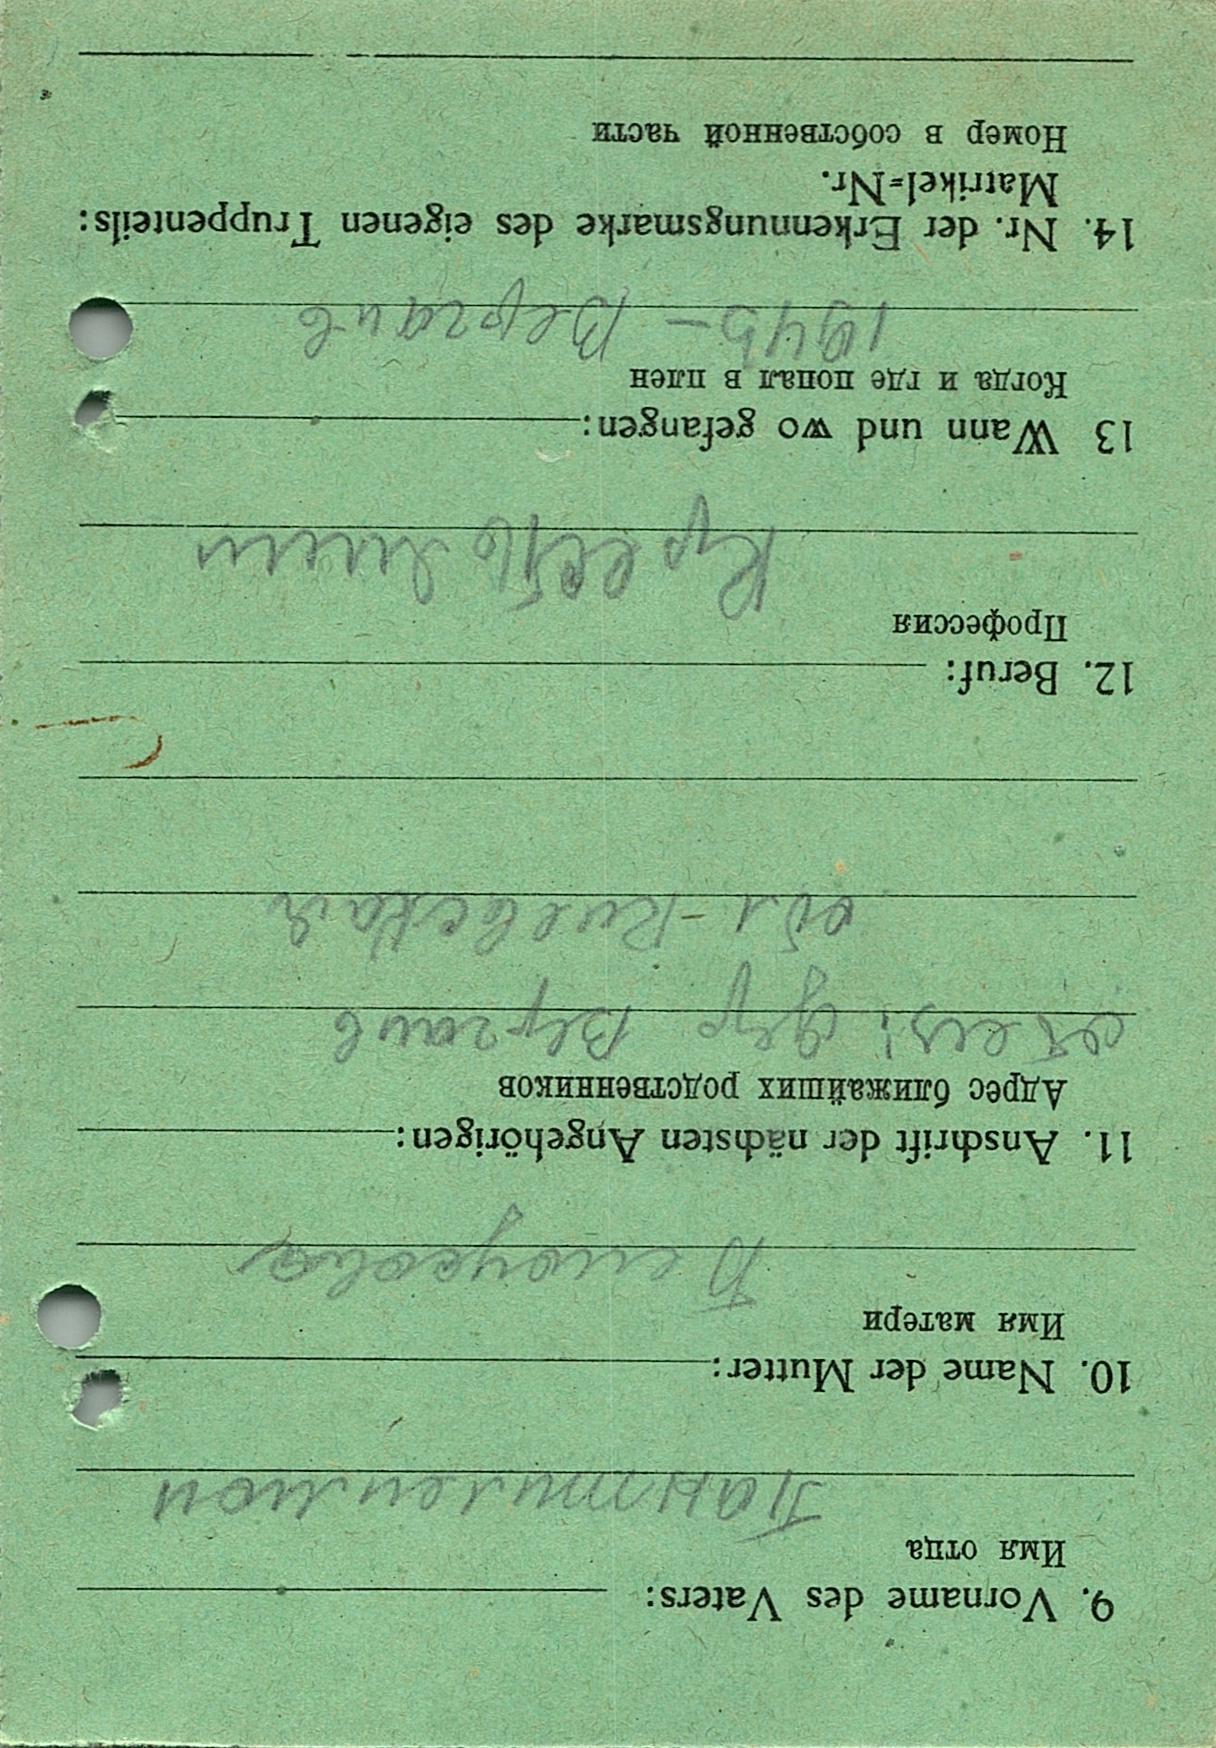 9. Vorname des Vaters:
Имя отца
Пантилеимон
10. Name der Mutter:
Имя матери
Белоусова
11. Anschrift der nächsten Angehörigen:
Адрес ближайших родственников
отец: дер
обл-Киевская
12. Beruf:
Профессия
13 Wann und wo gefangen:
Когда и где попал в плен
14. Nr. der Erkennungsmarke des eigenen Truppenteils:
Matrikel=Nr.
Номер в собственной части